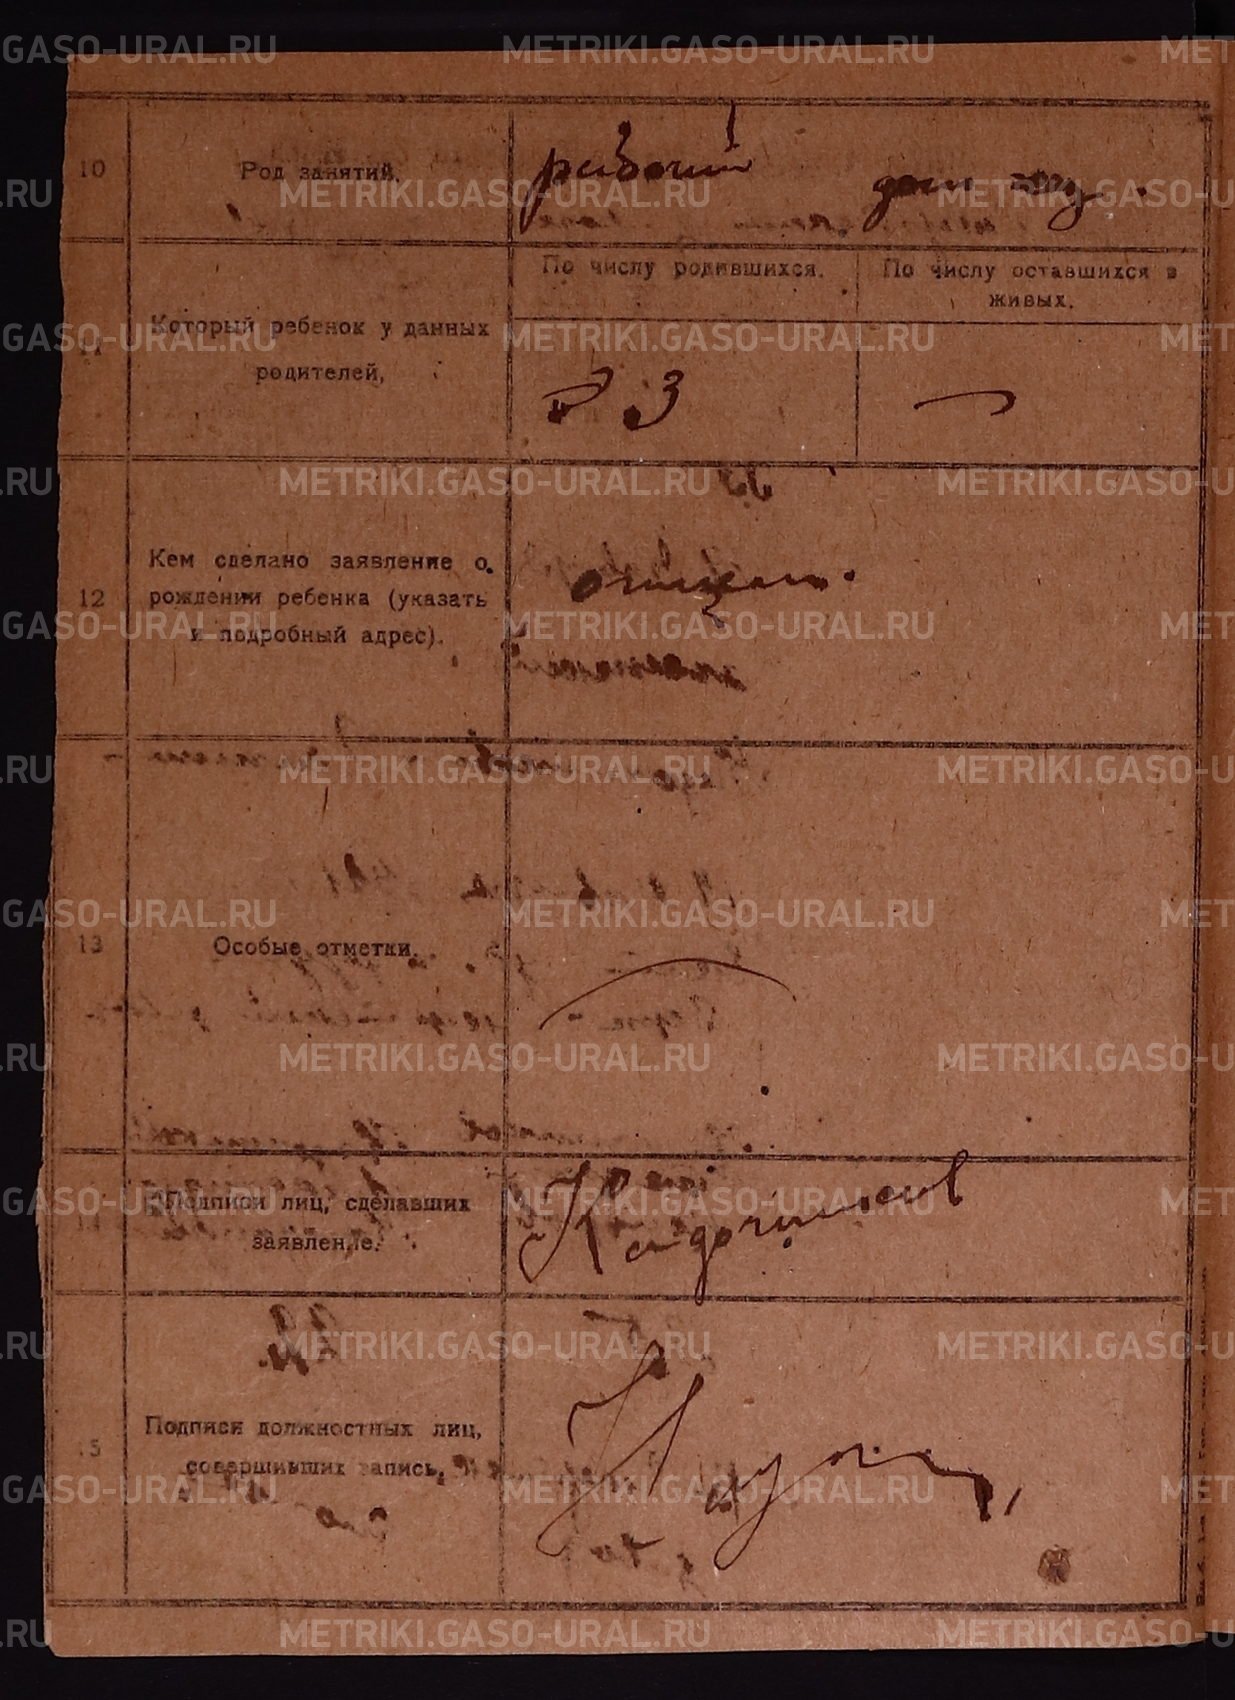 METRIKI.GASO-URAL.RU
10
Род занятий.
рабочий
дом хоз.
11
Который ребенок у данных
родителей,
По числу родившихся.
По числу оставшихся в
живых.
3
—
12
Кем сделано заявление о
рождении ребенка (указать
и подробный адрес).
отцем.
13
Особые отметки.
14
Подписи лиц, сделавших
заявление.
15
Подписи должностных лиц,
совершивших запись.